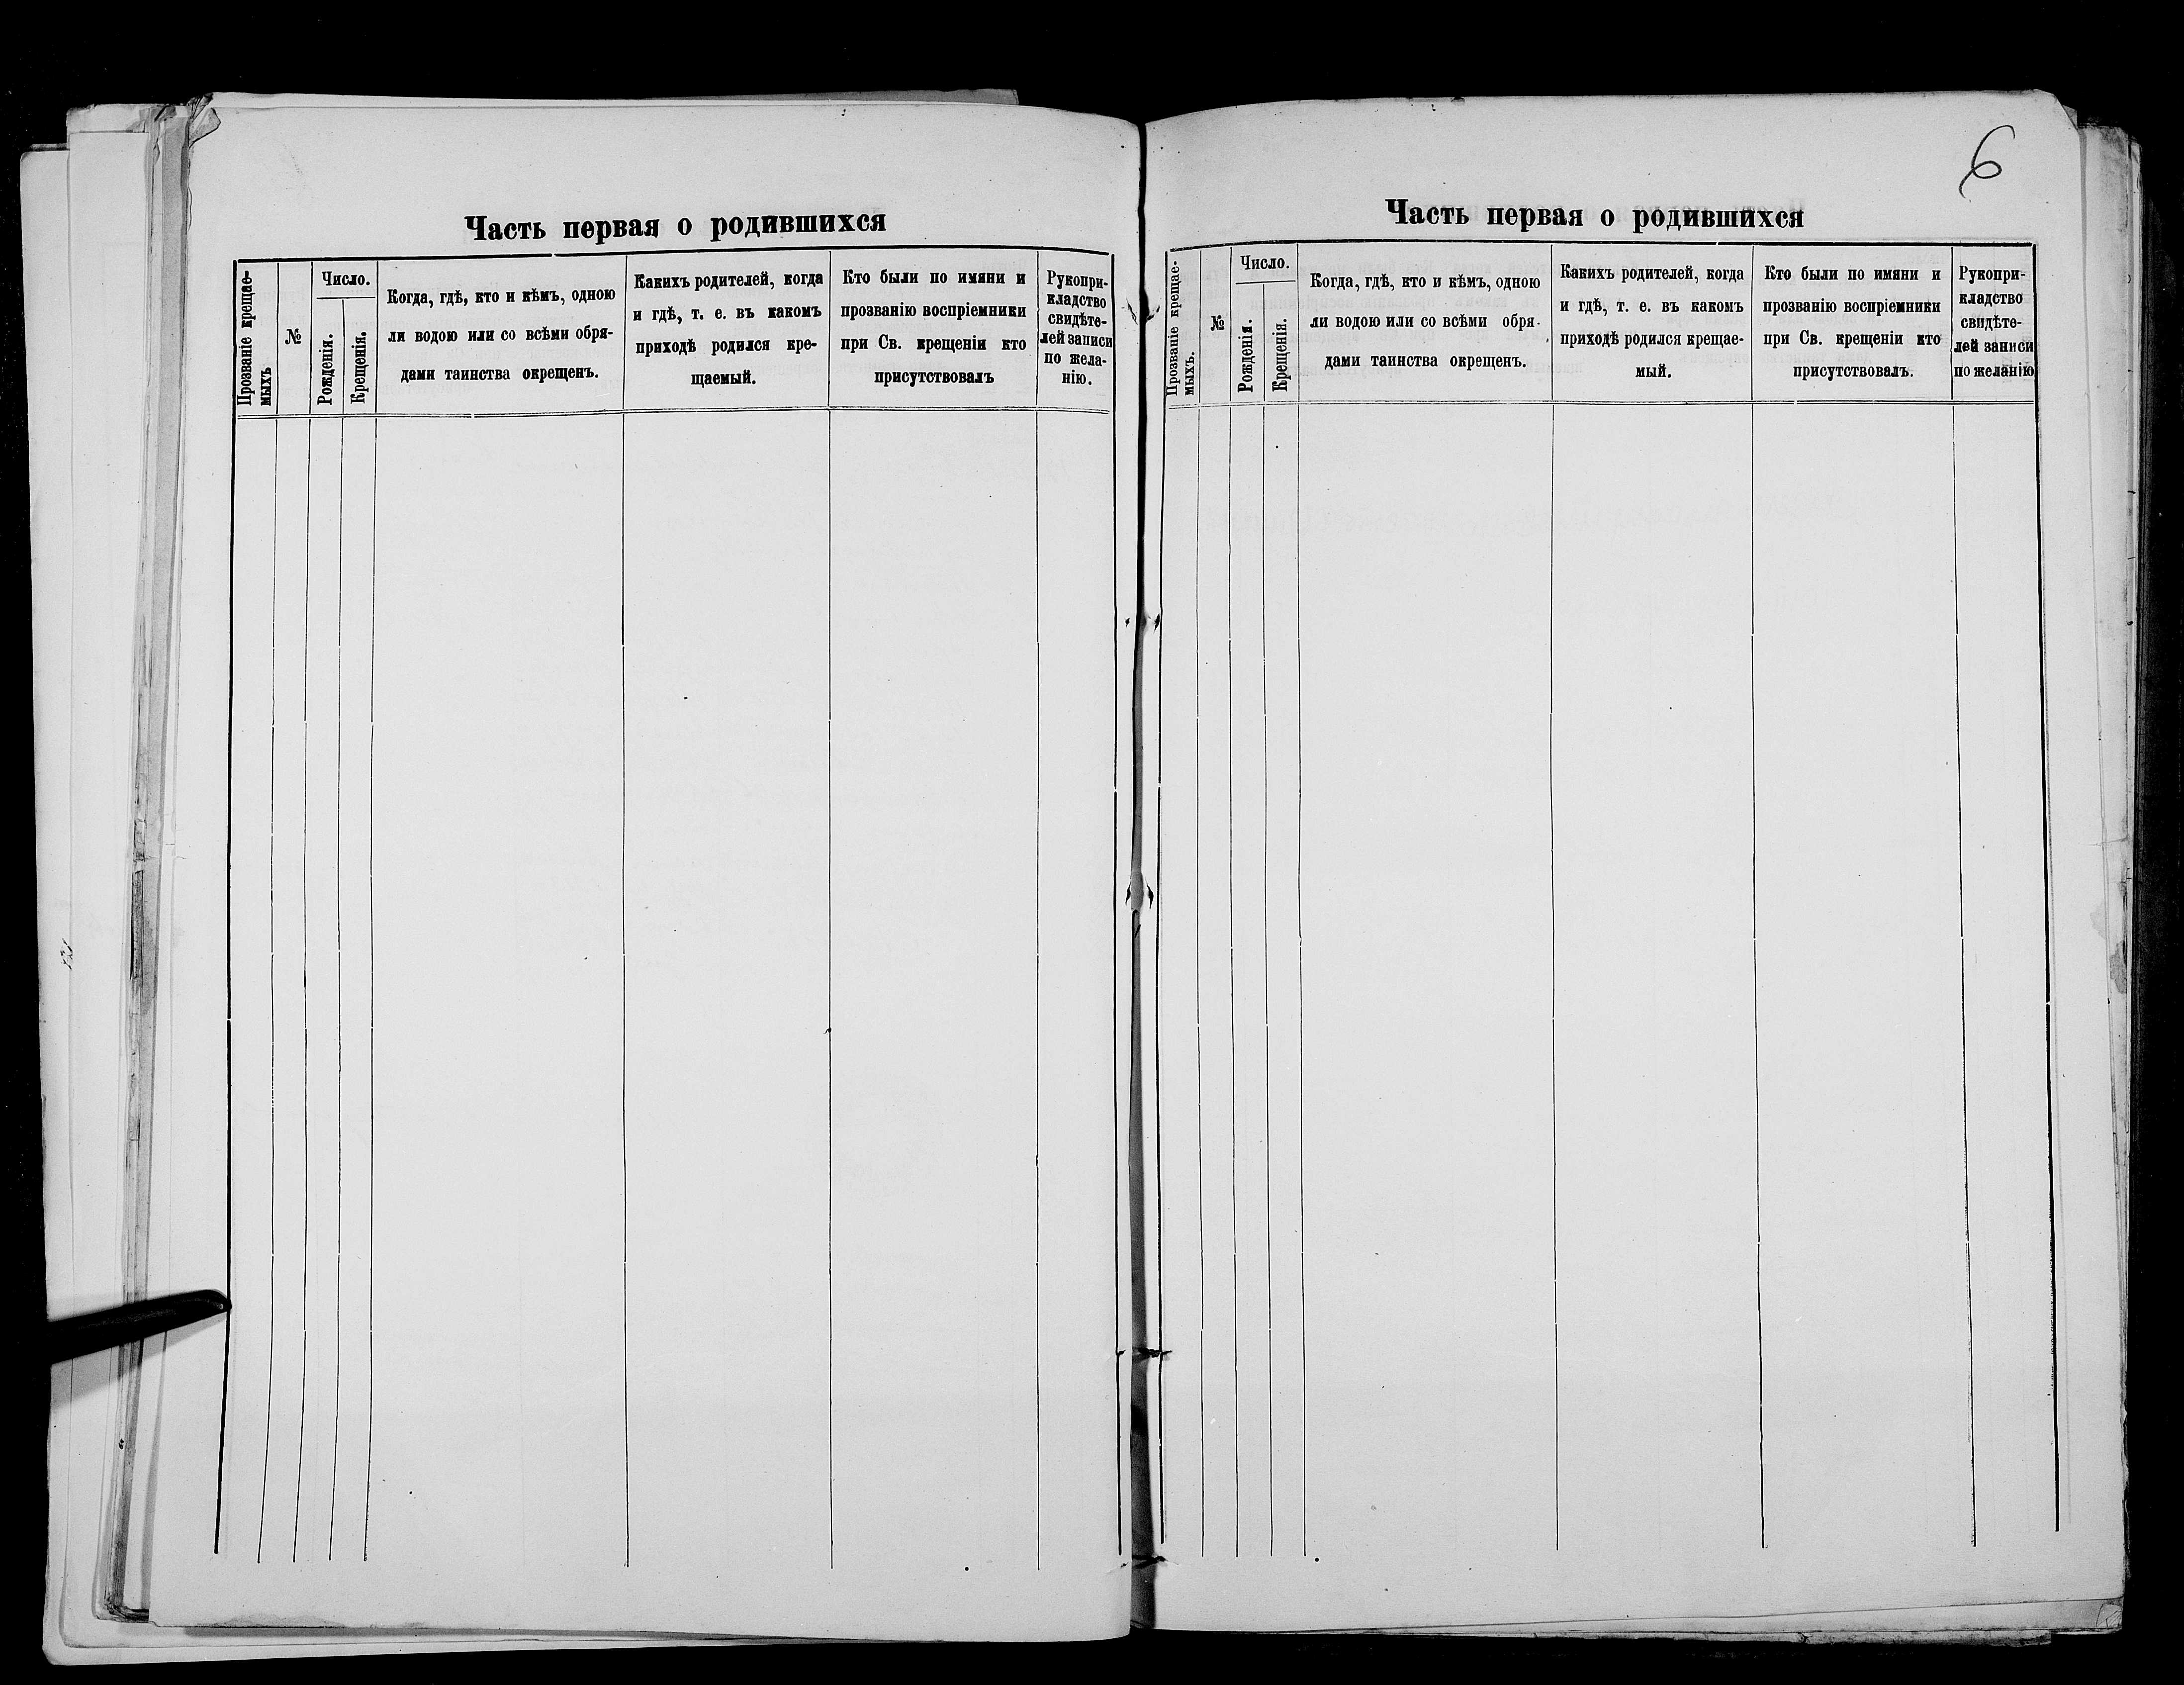 Часть первая о родившихся
Прозваніе крещае-
мыхъ
№
Число.
Рожденія.
Крещенія.
Когда, гдѣ, кто и кѣмъ, одною
ли водою или со всѣми обря-
дами таинства окрещенъ.
Какихъ родителей, когда
и гдѣ, т. е. въ какомъ
приходѣ родился кре-
щаемый.
Кто были по имяни и
прозванію воспріемники
при Св. крещеніи кто
присутствовалъ
Рукопри-
кладство
свидѣте-
лей записи
по жела-
нію.
6
Часть первая о родившихся
Прозваніе крещае-
мыхъ.
№
Число.
Рожденія.
Крещенія.
Когда, гдѣ, кто и кѣмъ, одною
ли водою или со всѣми обря-
дами таинства окрещенъ.
Какихъ родителей, когда
и гдѣ, т. е. въ какомъ
приходѣ родился крещае-
мый.
Кто были по имяни и
прозванію воспріемники
при Св. крещеніи кто
присутствовалъ.
Рукопри-
кладство
свидѣте-
лей записи
по желанію